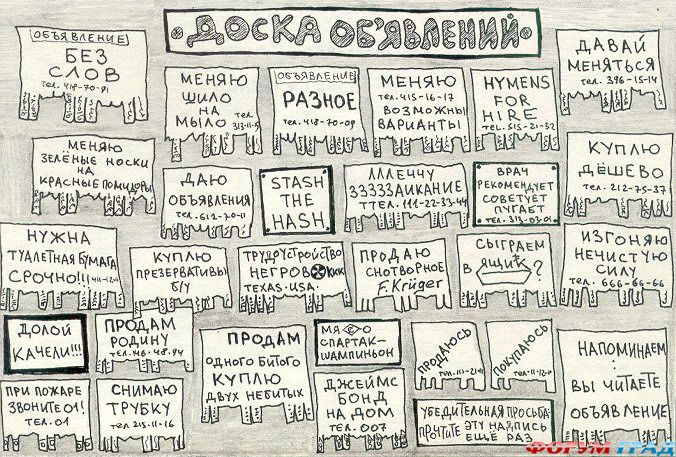 ДОСКА ОБЪЯВЛЕНИЙ
ОБЪЯВЛЕНИЕ
БЕЗ
СЛОВ
ТЕЛ. 418-70-91
МЕНЯЮ
ШИЛО
НА
МЫЛО
ТЕЛ.
313-11-5
ОБЪЯВЛЕНИЕ
РАЗНОЕ
ТЕЛ. 418-70-09
МЕНЯЮ
ТЕЛ. 415-16-17
ВОЗМОЖНЫ
ВАРИАНТЫ
HYMENS
FOR
HIRE
TEL. 515-21-32
ДАВАЙ
МЕНЯТЬСЯ
ТЕЛ. 396-15-14
МЕНЯЮ
ЗЕЛЁНЫЕ НОСКИ
НА
КРАСНЫЕ ПОМИДОРЫ
ДАЮ
ОБЪЯВЛЕНИЯ
ТЕЛ. 612-70-11
STASH
THE
HASH
ЛЛЛЕЧУ
ЗЗЗЗЗАИКАНИЕ
ТТЕЛ. 111-22-33-44
ВРАЧ
РЕКОМЕНДУЕТ
СОВЕТУЕТ
ПУГАЕТ
ТЕЛ. 313-03-01
КУПЛЮ
ДЁШЕВО
ТЕЛ. 212-75-37
НУЖНА
ТУАЛЕТНАЯ БУМАГА
СРОЧНО!!!
КУПЛЮ
ПРЕЗЕРВАТИВЫ
Б/У
ТРУДУСТРОЙСТВО
НЕГРОВ KKK
TEXAS.USA.
ПРОДАЮ
СНОТВОРНОЕ
F.Krüger
СЫГРАЕМ
В ЯЩИК?
ИЗГОНЯЮ
НЕЧИСТУЮ
СИЛУ
ТЕЛ. 666-66-66
ДОЛОЙ
КАЧЕЛИ!!!
ПРОДАМ
РОДИНУ
ТЕЛ. 146-48-94
ПРОДАМ
ОДНОГО БИТОГО
КУПЛЮ
ДВУХ НЕБИТЫХ
МЯСО
СПАРТАК-
ШАМПИНЬОН
ПРОДАЮСЬ
ПОКУПАЮСЬ
НАПОМИНАЕМ:
ВЫ ЧИТАЕТЕ
ОБЪЯВЛЕНИЕ
ПРИ ПОЖАРЕ
ЗВОНИТЕ 01!
ТЕЛ. 01
СНИМАЮ
ТРУБКУ
ТЕЛ 215-11-16
ДЖЕЙМС
БОНД
НА ДОМ
ТЕЛ. 007
УБЕДИТЕЛЬНАЯ ПРОСЬБА:
ПРОЧТИТЕ ЭТУ НАДПИСЬ
ЕЩЁ РАЗ
ФОРУМГРАД